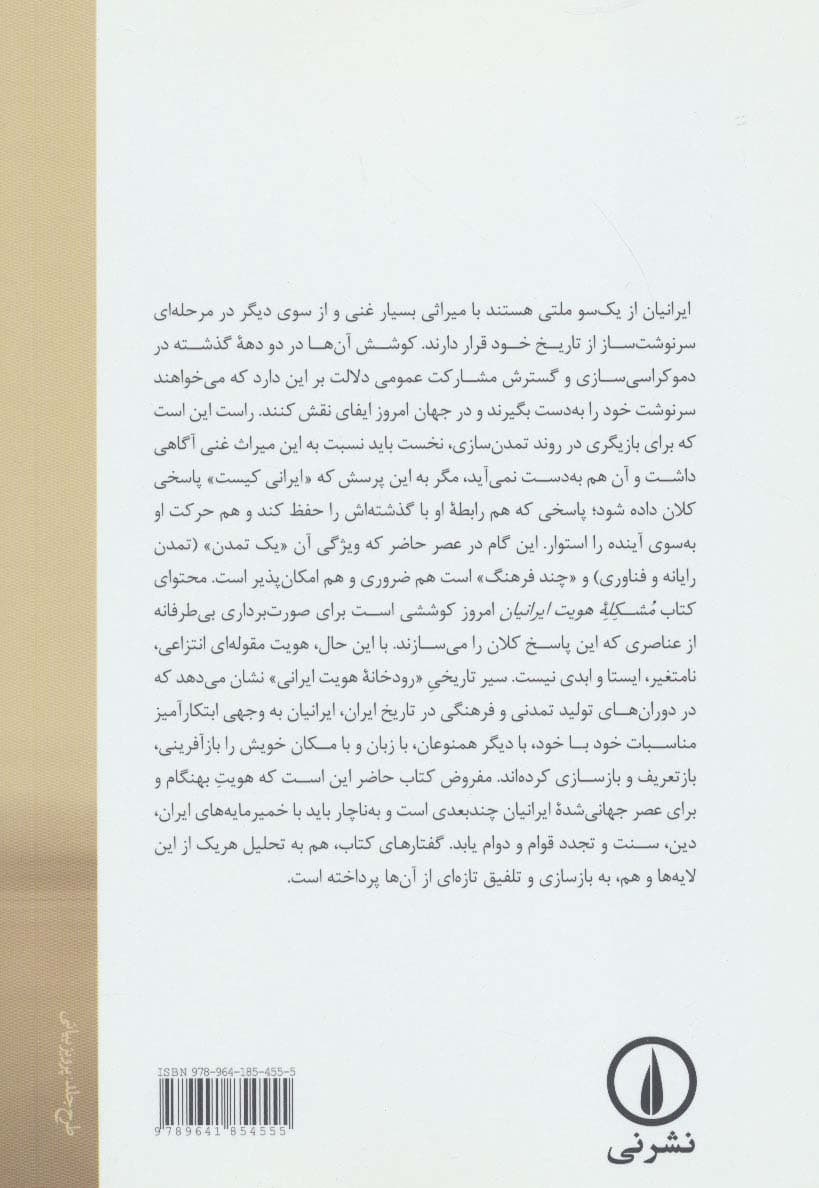 ایرانیان از یک‌سو ملتی هستند با میراثی بسیار غنی و از سوی دیگر در مرحله‌ای
سرنوشت‌ساز از تاریخ خود قرار دارند. کوشش آن‌ها در دو دههٔ گذشته در
دموکراسی‌سازی و گسترش مشارکت عمومی دلالت بر این دارد که می‌خواهند
سرنوشت خود را به‌دست بگیرند و در جهان امروز ایفای نقش کنند. راست این است
که برای بازیگری در روند تمدن‌سازی، نخست باید نسبت به این میراث غنی آگاهی
داشت و آن هم به‌دست نمی‌آید، مگر به این پرسش که «ایرانی کیست» پاسخی
کلان داده شود؛ پاسخی که هم رابطهٔ او با گذشته‌اش را حفظ کند و هم حرکت او
به‌سوی آینده را استوار. این گام در عصر حاضر که ویژگی آن «یک تمدن» (تمدن
رایانه و فناوری) و «چند فرهنگ» است هم ضروری و هم امکان‌پذیر است. محتوای
کتاب مُشکِلِهٔ هویت ایرانیان امروز کوششی است برای صورت‌برداری بی‌طرفانه
از عناصری که این پاسخ کلان را می‌سازند. با این حال، هویت مقوله‌ای انتزاعی،
نامتغیر، ایستا و ابدی نیست. سیر تاریخیِ «رودخانهٔ هویت ایرانی» نشان می‌دهد که
در دوران‌های تولید تمدنی و فرهنگی در تاریخ ایران، ایرانیان به وجهی ابتکارآمیز
مناسبات خود با خود، با دیگر همنوعان، با زبان و با مکان خویش را بازآفرینی،
بازتعریف و بازسازی کرده‌اند. مفروض کتاب حاضر این است که هویتِ بهنگام و
برای عصر جهانی‌شدهٔ ایرانیان چندبعدی است و به‌ناچار باید با خمیرمایه‌های ایران،
دین، سنت و تجدد قوام و دوام یابد. گفتارهای کتاب، هم به تحلیل هریک از این
لایه‌ها و هم، به بازسازی و تلفیق تازه‌ای از آن‌ها پرداخته است.
طرح جلد: پرویز بیانی
ISBN 978-964-185-455-5
9 789641 854555
نشرنی